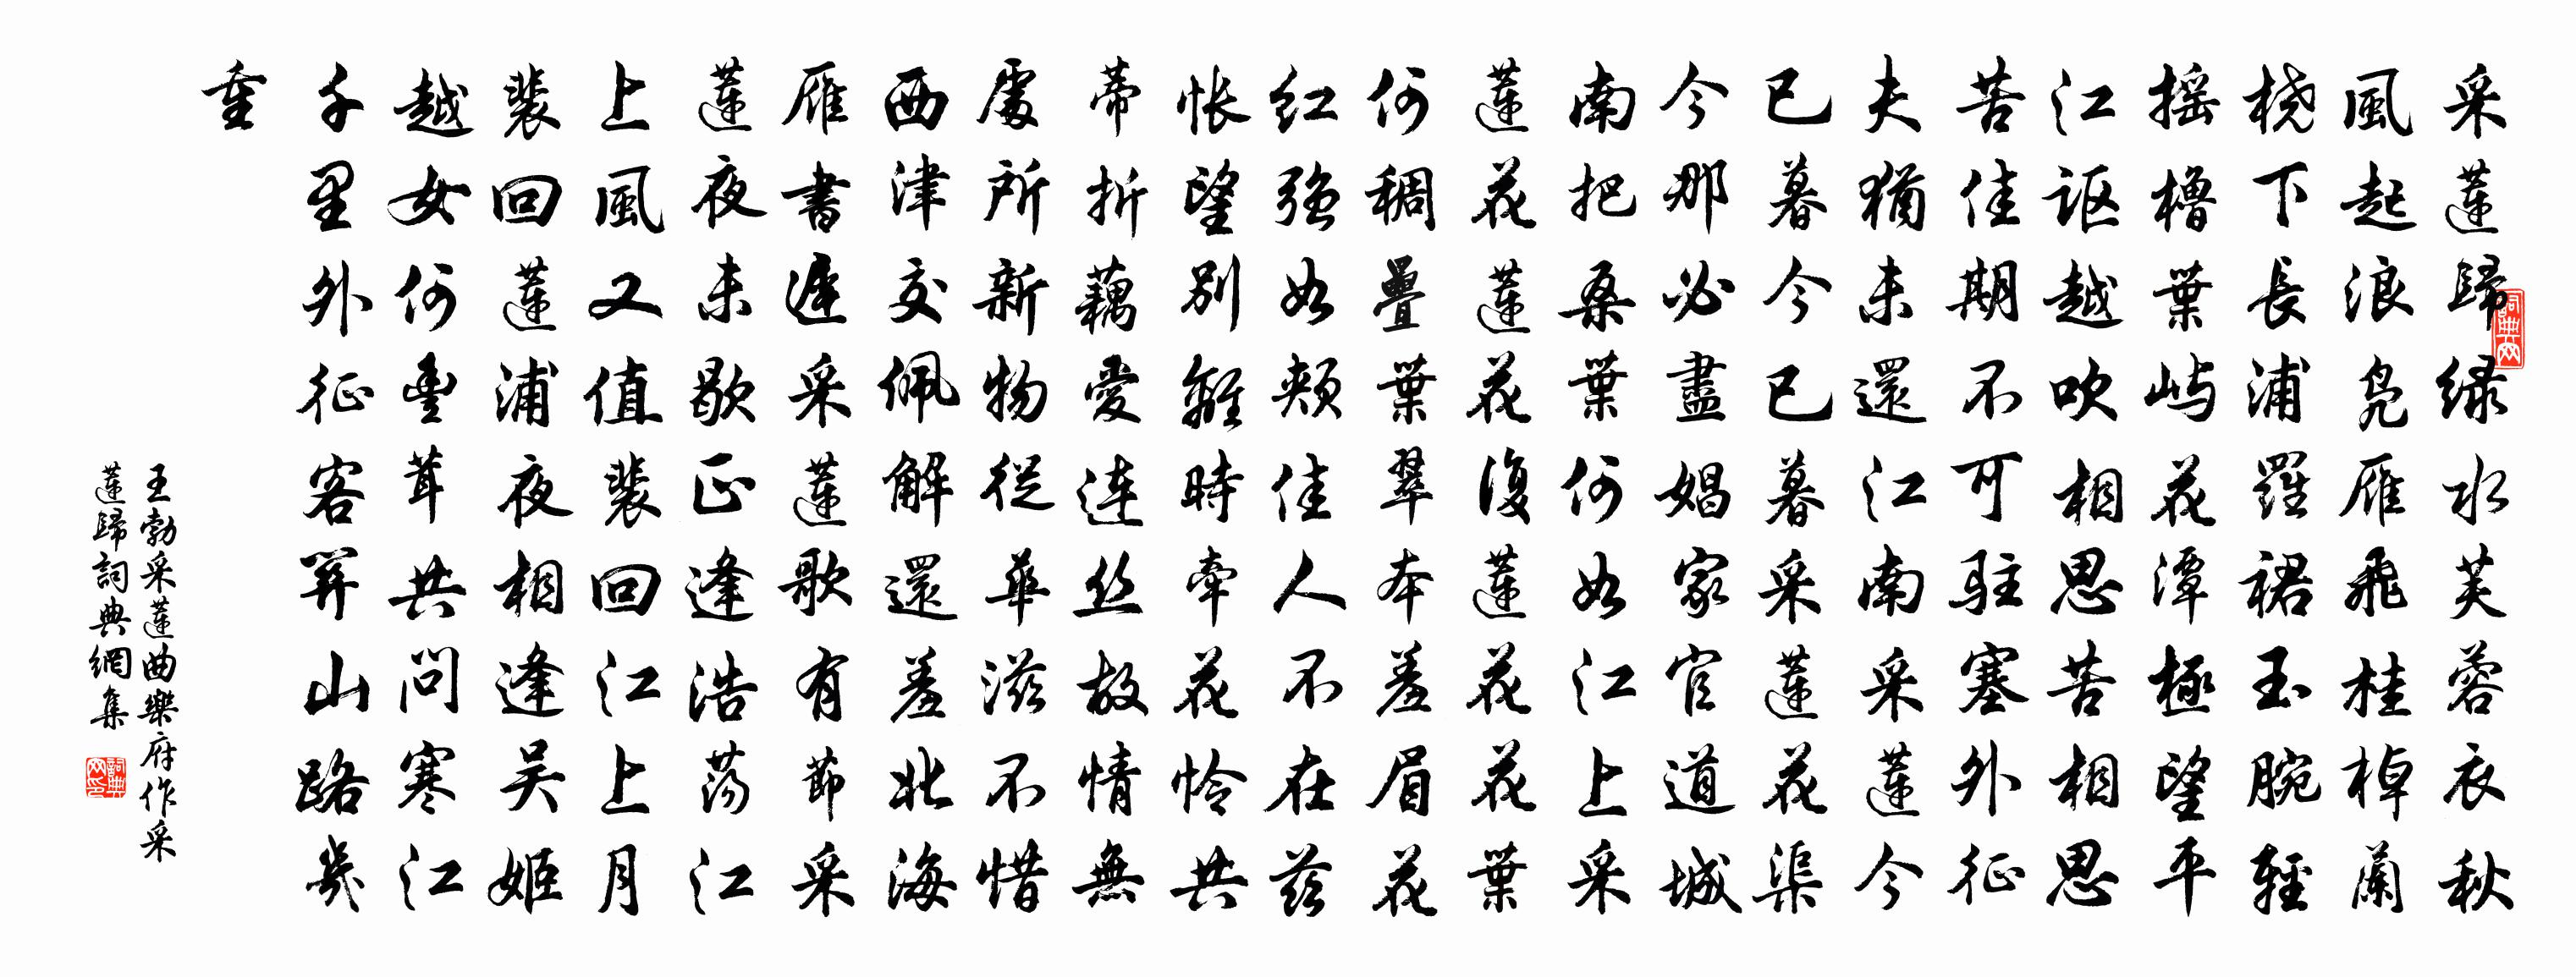 采蓮歸綠水芙蓉衣秋
風起浪鳧雁飛桂棹蘭
橈下長浦羅裙玉腕輕
摇櫓葉屿花潭極望平
江謳越吹相思苦相思
苦佳期不可駐塞外征
夫猶未還江南采蓮今
已暮今已暮采蓮花渠
今那必盡娼家官道城
南把桑葉何如江上采
蓮花蓮花復蓮花花葉
何稠疊葉翠本羞眉花
红强如頰佳人不在兹
悵望别離時牽花怜共
蒂折藕愛連丝故情無
處所新物從華滋不惜
西津交佩解還羞北海
雁書遲采蓮歌有節采
蓮夜未歇正逢浩荡江
上風又值裴回江上月
裴回蓮浦夜相逢吴姬
越女何豊茸共問寒江
千里外征客關山路幾
重
王勃采蓮曲樂府作采
蓮歸詞典網集
詞典网
詞典网印